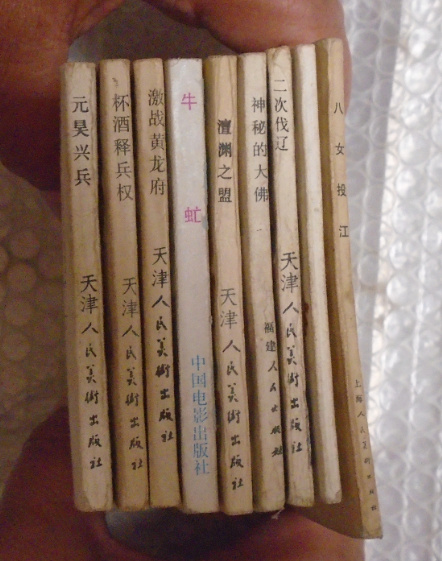 元昊兴兵
天津人民美術出版社
杯酒释兵权
天津人民美術出版社
激战黄龙府
天津人民美術出版社
牛虻
中国电影出版社
澶渊之盟
天津人民美術出版社
神秘的大佛
福建人民出版社
二次伐辽
天津人民美術出版社
八女投江
上海人民美術出版社